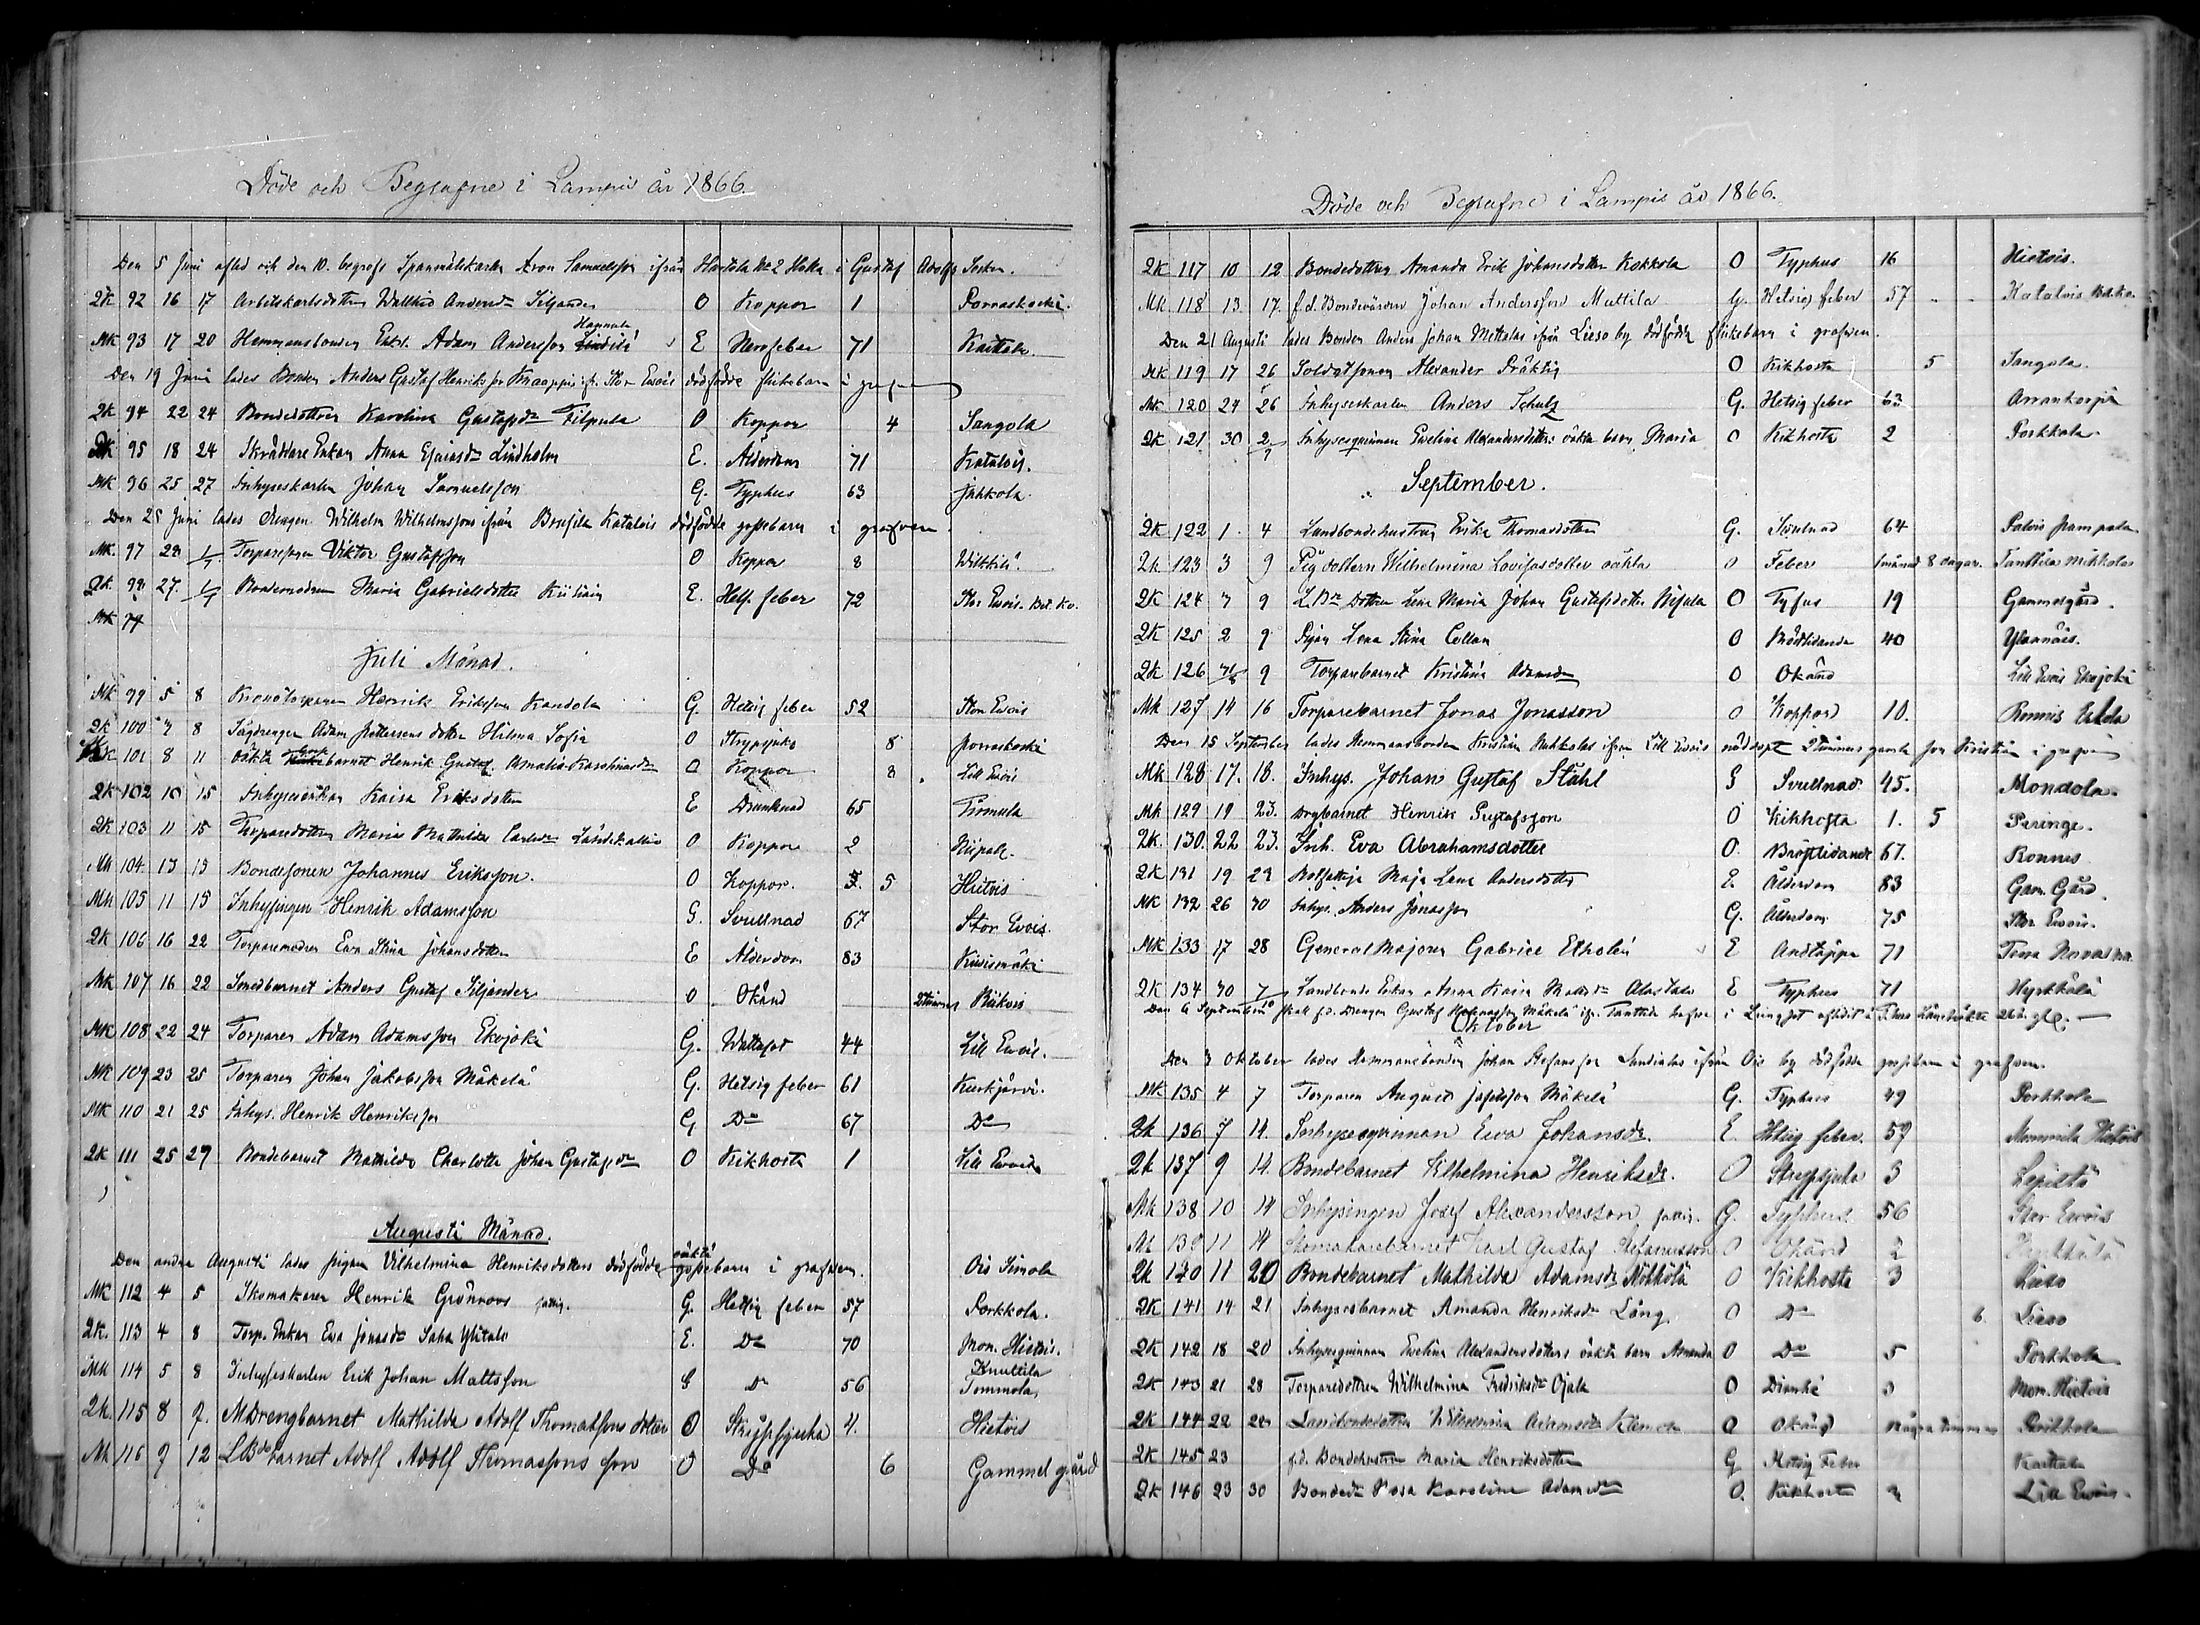 Döde och Begrafne i Lampis år 1866.
Den 5 Juni afled och den 10. begrofs Spanmålskarlen Aron Samuelsson ifrån Hartola No 2 Hakka i Gustaf Adolfs Socken.
QK 92 16 17 Arbetskarlsdottren Andersdr Siljander O Koppor 1 Porraskoski.
MK 93 17 20 Hemmansbonden Enkl. Adam Andersson Hannula E Nervfeber 71 Kaitala.
Den 19 Juni lades Bonden Anders Gustaf Henriksson Knaappis ifr. Stor Evois dödfödde flickebarn i grafven
QK 94 22 24 Bondedottren Karolina Gustafsdr Filpula O Koppor 4 Sangola
QK 95 18 24 Skräddare Enkan Anna Lindholm E. Ålderdom 71 Katalois.
MK 96 25 27 Inhyseskarlen Johan Samuelsson G. Typhus 63 Jahkola.
Den 25 Juni lades drengen Wilhelm Wilhelmssons ifrån Katalois dödfödde gossebarn i grafven.
MK. 97 28 1/7 Torparesonen Viktor Gustafsson O Koppor 8
QK. 98 27. 1/7 Bondemodren Maria Gabrielsdotter E. Hets. feber 72 Stor Evois. Bol. Kv.
MK 99
Juli Månad.
MK 99 5 8 Kronotorparen Henrik Eriksson Kandola G. Hetsig feber 52 Stor Evois
QK 100 7 8 Sågdrengen Adam Pettersons dotter Hilma Sofia O Strypsjuka 8 Porraskoski
MK 101 8 11 Oäkta Gossebarnet Henrik Gustaf Amalia Karolinasdr O Koppor 8 Lill Evois
QK 102 10 15 Inhysesenkan Kaisa Eriksdotter E Drunknad 65 Tiomula
QK 103 11 15 Torparedottren Maria Mathilda Carlsdr O Koppor 2
MK 104. 13 15 Bondesonen Johannes Eriksson. O Koppor. 5 Hietois
MK 105 11 15 Inhysingen Henrik Adamsson G. Svullnad 67 Stor Evois.
QK 106 16 22 Torparemodren Eva Stina Johansdotter E Ålderdom 83 Kiisimäki
MK 107 16 22 Smedbarnet Anders Gustaf Siljander O Okänd 2 timmar
MK 108 22 24 Torparen Adam Adamsson Ekojoki G. Wattusot 44 Lill Evois.
MK 109 23 25 Torparen Johan Jakobsson Mäkelä G. Hetsig feber 61 Kuurkjärvi.
MK 110 21 25 Inhys. Henrik Henriksson G Do 67 Do
QK 111 25 29 Bondebarnet Mathilda Charlotta Johan Gustafsdr O Kikhosta 1 Lill Evois
Augusti Månad.
Den andra Augusti lades pigan Vilhelmina Henriksdotters dödfödde oäkta gossebarn i grafven. Ois Simola
MK 112 4 5 Skomakaren Henrik Grönroos fattig. G. Hetsig feber 57 Porkkola.
QK. 113 4 8 Torp. Enkan Eva Jonasdr Saha Ylitalo E. Do 70 Mom. Hietois.
MK 114 5 8 Inhyseskarlen Erik Johan Mattsson G Do 56 Knuttila Tommola
QK. 115 8 9. MDrengbarnet Mathilda Adolf Thomassons dotter O Strypsjuka 4. Hietois
MK 116 9 12 LBdebarnet Adolf Adolf Thomassons son O Do 6 Gammelgård
Döde och Begrafne i Lampis år 1866.
QK 117 10 12 Bondedottren Amanda Erik Johansdotter Kokkola O Typhus 16 Hietois.
MK 118 13 17. f.d. Bondevärden Johan Andersson Mattila G. Hetsig feber 57 Katalois
Den 21 Augusti lades Bonden Anders Johan Mikkolas ifrån Lieso by dödfödde flickebarn i grafven.
MK 119 17 26 Soldatsonen Alexander Präktig O Kikhosta 5 Sangola.
MK 120 24 26 Inhyseskarlen Anders Schulz G. Hetsig feber 63 Arrankorpi
QK 121 30 2/9 Inhysesqvinnan Evelina Alexandersdotters oäkta barn Maria O Kikhosta 2 Porkkola
September.
QK 122 1 4 Landbondehustrun Erika Thomasdotter G. Svullnad 64
QK 123 3 9 Pigdottern Wilhelmina Lovisasdotter oäkta O Feber 1 månad 8 dagar. Tanttila Mikkola
QK 124 7 9 LBde Dottren Lena Maria Johan Gustafsdotter O Tyfus 19 Gammelgård.
QK 125 2 9 Pigan Lena Stina Collan O Bröstlidande 40
QK 126 31/8 9 Torparebarnet Kristina Adamsdr O Okänd Lill Evois Ekojoki
MK 127 14 16 Torparebarnet Jonas Jonasson O Koppor 10. Ronnis
Den 15 September lades Hemmansbonden Kristian Mikkolas ifrån Lill Evois nöddöpt 2 timmars gamla son Kristian i grafven
MK 128 17. 18. Inhys. Johan Gustaf Ståhl G Svullnad 45. Mondola.
MK 129 19 23. Drgbarnet Henrik Gustafsson O Kikhosta 1. 5 Paringe.
QK. 130. 22 23. Inh. Eva Abrahamsdotter O. Bröstlidande 67. Ronnis
QK 131 19 23 Rotfattiga Maja Lena Andersdotter E. Ålderdom 83 Gam. Gård.
MK 132 26 30 Inhys. Anders Jonasson G. Ålderdom 75 Stor Evois.
MK 133 17 28 Generalmajoren Gabriel Etholén E Andtäppa 71
QK 134 30 7 Landbonde Enkan Anna Kaisa Mattsdr Alastalo E Typhus 71 Hyrkkälä
Oktober
Den 3 Oktober lades Hemmansbonden Johan Stefansson ifrån Ois by dödfödde gossebarn i grafven.
MK 135 4 7 Torparen August Josefsson Mäkelä G. Typhus 49 Porkkola
QK 136 7 14. Inhysesqvinnan Eva Johansdr. E. Hetsig feber. 59 Mommila Hietois
QK 137 9 14. Bondebarnet Vilhelmina Henriksdr. O Strypsjuka 3 Lepistö
MK 138 10 14 Inhysingen Josef Alexandersson fattig. G. Typhus. 56 Stor Evois
MK 139 11 14 Skomakarebarnet Karl Gustaf Stefansson O Okänd 2 Hyrkkälä
QK 140 11 20 Bondebarnet Mathilda Adamsdr O Kikhosta 3 Lieso
QK 141 14 21 Inhysesbarnet Amanda Henriksdr Lång O Do 6. Lieso
QK 142 18 20 Inhysesqvinnan Evelina Alexandersdotters oäkta barn Amanda O Do 5 Porkkola
QK 143 21 28 Torparedottren Wilhelmina Fredriksdr Ojala O Mom. Hietois
QK 144 22 Landbondedotter Wilhelmina Adamsdr O Okänd några timmar Porkkola
QK 145 23 f.d. Bondehustrun Maria Henriksdotter G Hetsig Feber Kaitala
QK 146 23 30 Bondedr Rosa Karolina Adamsdr O. Kikhosta Lill Evois.